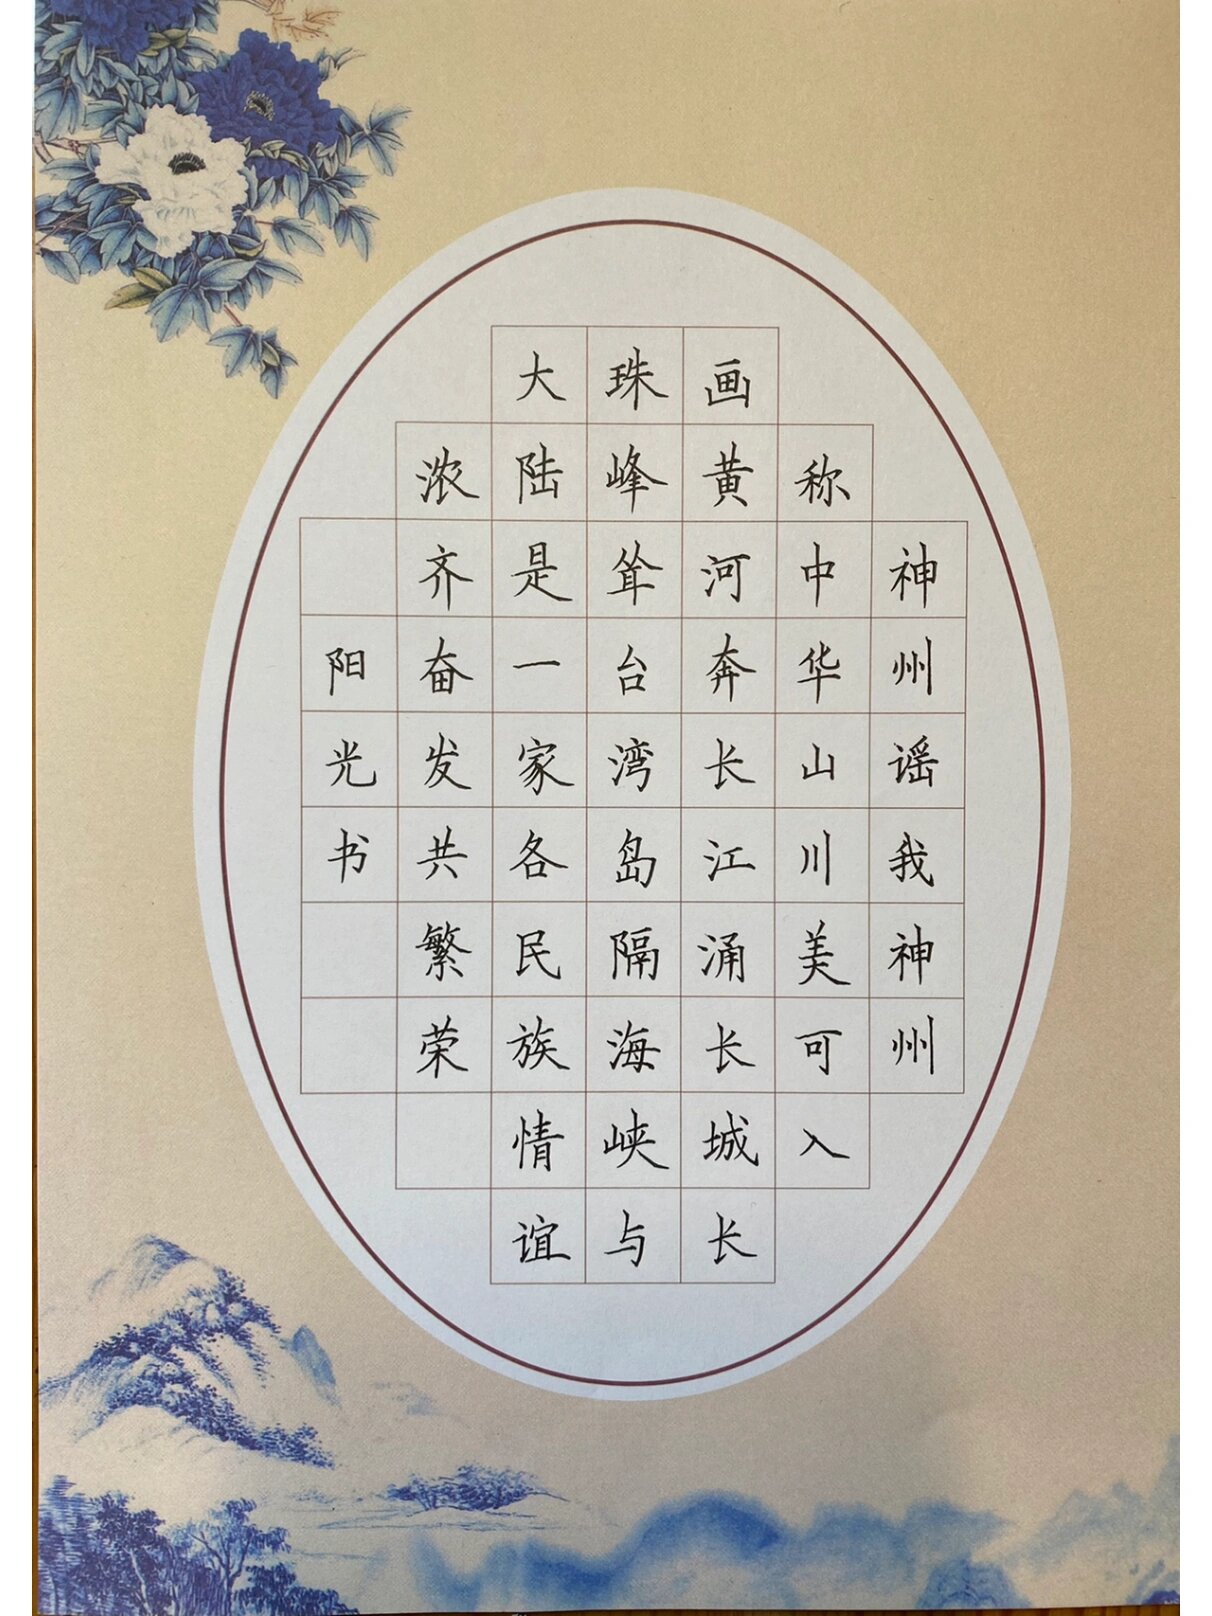 神州谣我神州
称中华山川美可入
画黄河奔长江涌长城长
珠峰耸台湾岛隔海峡与
大陆是一家各民族情谊
浓齐奋发共繁荣
阳光书